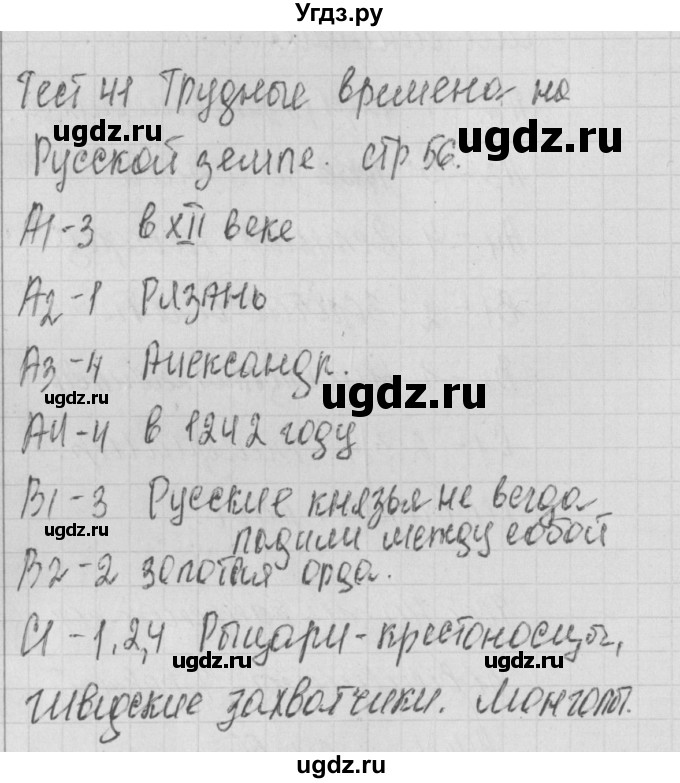 Угдз.ру
Тест 41 Трудные времена на
ugdz.ru ugdz.ru
Русской земле. стр 56.
А1-3 в XII веке
А2-1 Рязань
ugdz.ru
А3-4 Александр.
ugdz.ru ugdz.ru
А4-4 в 1242 году
В1-3 Русские князья не всегда
ugdz.ru
ладили между собой
В2-2 Золотая орда.
С1-1,2,4 Рыцари-крестоносцы,
ugdz.ru ugdz.ru
Шведские захватчики. Монголы.
ugdz.ru